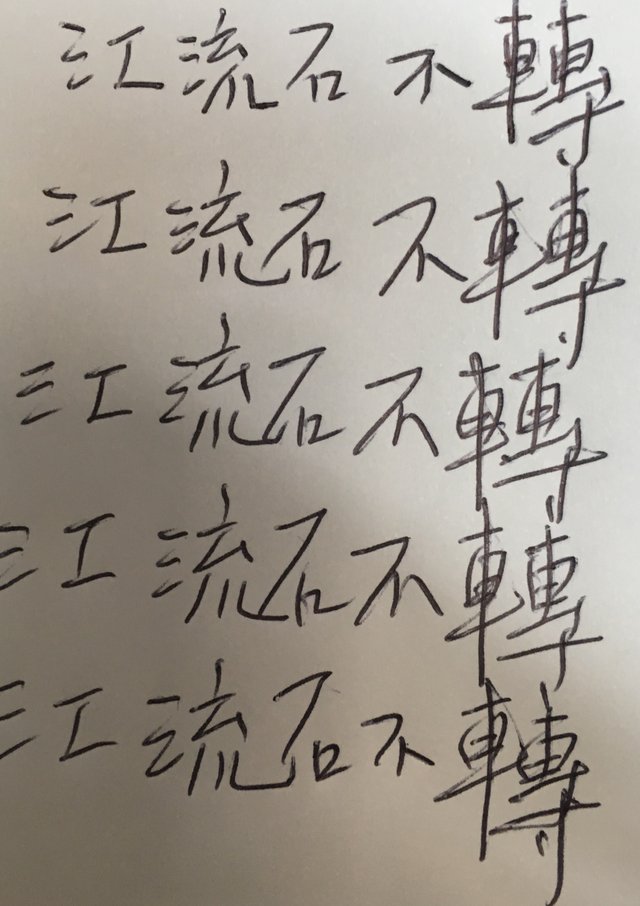 江流石不轉
江流石不轉
江流石不轉
江流石不轉
江流石不轉